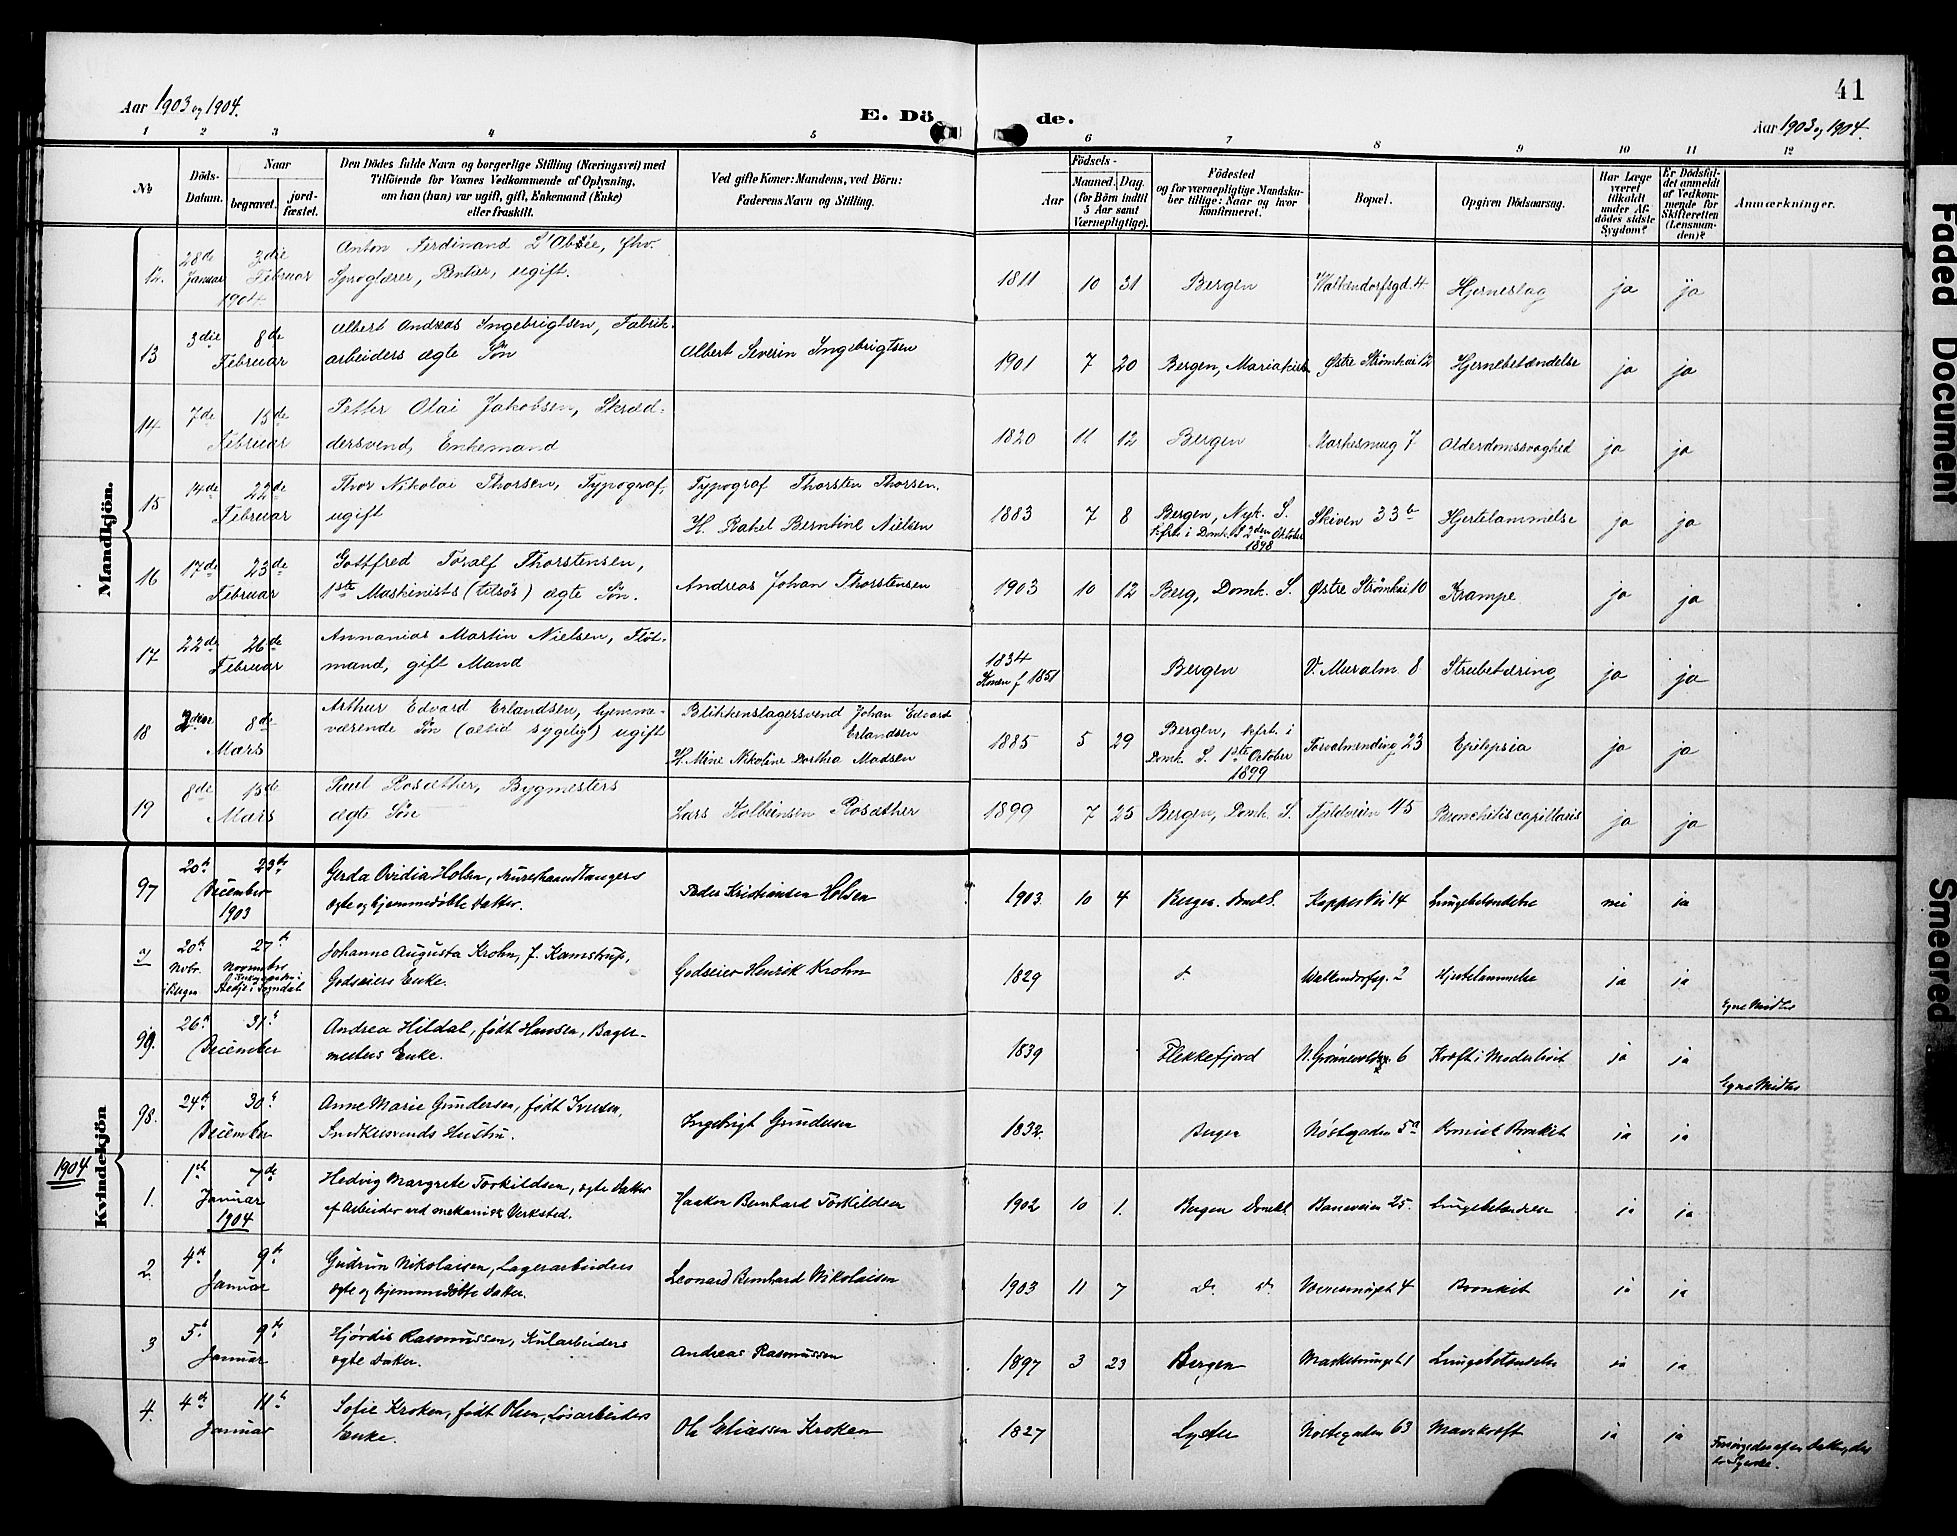 41
Aar 1903 og 1904.
E. Dö de.
Aar 1903 og 1904.
1 2 3 4 5 6 7 8 9 10 11 12
No
Döds-Datum.
Naar
begravet.
jord-fæstet.
Den Dödes fulde Navn og borgerlige Stilling (Næringsvei) med
Tilföiende for Voxnes Vedkommende af Oplysning,
om han (hun) var ugift, gift, Enkemand (Enke)
eller fraskilt.
Ved gifte Koner: Mandens, ved Börn:
Faderens Navn og Stilling.
Födsels-
Aar
Maaned. Dag.
(for Börn indtil
5 Aar samt
Værnepligtige).
Födested
og for værnepligtige Mandska-
ber tillige: Naar og hvor
konfirmeret.
Bopæl.
Opgiven Dödsaarsag.
Har Læge
været
tilkaldt
under Af-
dödes sidste
Sygdom?
Er Dödsfal-
det anmeldt
af Vedkom-
mende for
Skifteretten
(Lensman-
den)?
Anmærkninger.
Mandkjön.
12. 28de Januar 3die Februar 1904 Anton Ferdinand L'Abée, fhv. Sproglærer, Rentier, ugift. 1811 10 31 Bergen Walkendorfsgd. 4 Hjerneslag ja ja
13 3die 8de Februar Albert Andreas Ingebrigtsen, Fabrik-
arbeiders ægte Sön Albert Severin Ingebrigtsen 1901 7 20 Bergen, Mariakirk Østre Strømkai 12 Hjernebetændelse ja ja
14 7de 15de Februar Petter Olai Jakobsen, Skræd-
dersvend, Enkemand 1820 11 12 Bergen Markesmug 7 Alderdomssvaghed ja ja
15 14de 22de Februar Thor Nikolai Thorsen, Typograf,
ugift Typograf Thorsten Thorsen.
H. Rakel Berntine Nielsen 1883 7 8 Bergen, Nyk. S.
kfrt. i Domk. S 2den Oktober
1898 Skiven 33b Hjertelammelse ja ja
16 17de 23de Februar Gottfred Toralf Thorstensen,
1ste Maskinists (tilsøs) ægte Sön. Andreas Johan Thorstensen 1903 10 12 Berg, Domk. S. Østre Strømkai 10 Krampe ja ja
17 22de 26de Februar Annanias Martin Nielsen, Fløt-
mand, gift Mand 1834
Konen f 1851 Bergen V. Muralm. 8 Strubetæring ja ja
18 8de Mars Arthur Edvard Erlandsen, hjemme-
værende Sön (altid sygelig) ugift Blikkenslagersvend Johan Edvard
Erlandsen
H. Mine Nikoline Dorthea Madsen 1885 5 29 Bergen, kfrt. i
Domk. S. 1ste Oktober
1899 Torvalmending 23 Epilepsia ja ja
19 8de 15de Mars Paul Rosæther, Bygmesters
ægte Sön Lars Kolbeinsen Rosæther 1899 7 25 Bergen, Domk. S. Fjeldveien 45 Bronchitis capillaris ja ja
Kvindekjön
97 20de 23de December 1903 Gerda Ovidia Holsen, Murerhaandlangers
ægte og hjemmedøbte Datter. Peder Kristiansen Holsen 1903. 10 4 Bergen. Domk S. 14 Lungebetændelse nei ja
20de Novbr. i Bergen 27de November Stedje i Sogndal Johanne Augusta Krohn, f. Kamstrup,
Godseiers Enke. Godseier Henrik Krohn 1829 d. Walkendorfsg. 2 Hjertelammelse ja ja Egne Midler
99. 26de 31te December Andrea Hildal, født Hansen, Bager-
mesters Enke. 1839 Flekkefjord N. Grønnevoldsg. 6 Kræft i Moderlivet ja ja Egne Midler
98. 24de 30te December Anne Marie Gundersen, født Iversen,
Snedkersvends Hustru. Ingebrigt Gundersen 1832. Bergen Nøstegaden 5a Kronisk Bronkit ja ja
1904
1. 1ste 7de Januar 1904 Hedvig Margrete Torkildsen, ægte Datter
af Arbeider ved mekanisk Verksted. Haakon Bernhard Torkildsen 1902 10 1. Bergen Domk S. Baneveien 25. Lungebetændelse ja ja
2. 4de 9de Januar Gudrun Nikolaisen, Lagerarbeiders
ægte og hjemmedøbte Datter. Leonard Bernhard Nikolaisen 1903 11 7 Do. do. 4 Bronkit ja ja
3 5te 9de Januar Hjørdis Rasmussen, Kularbeiders
ægte Datter. Andreas Rasmussen 1897 3 23 Bergen Markesmuget 1 Lungebetændelse ja ja
4. 4de 11te Januar Sofie Kroken, født Olsen, Løsarbeiders
Enke. Ole Eliassen Kroken 1827 Lyster Nøstegaden 63 Mavekræft ja ja Forsørgedes af en Datter, der
er Syerske.
Faded Document
Smeared